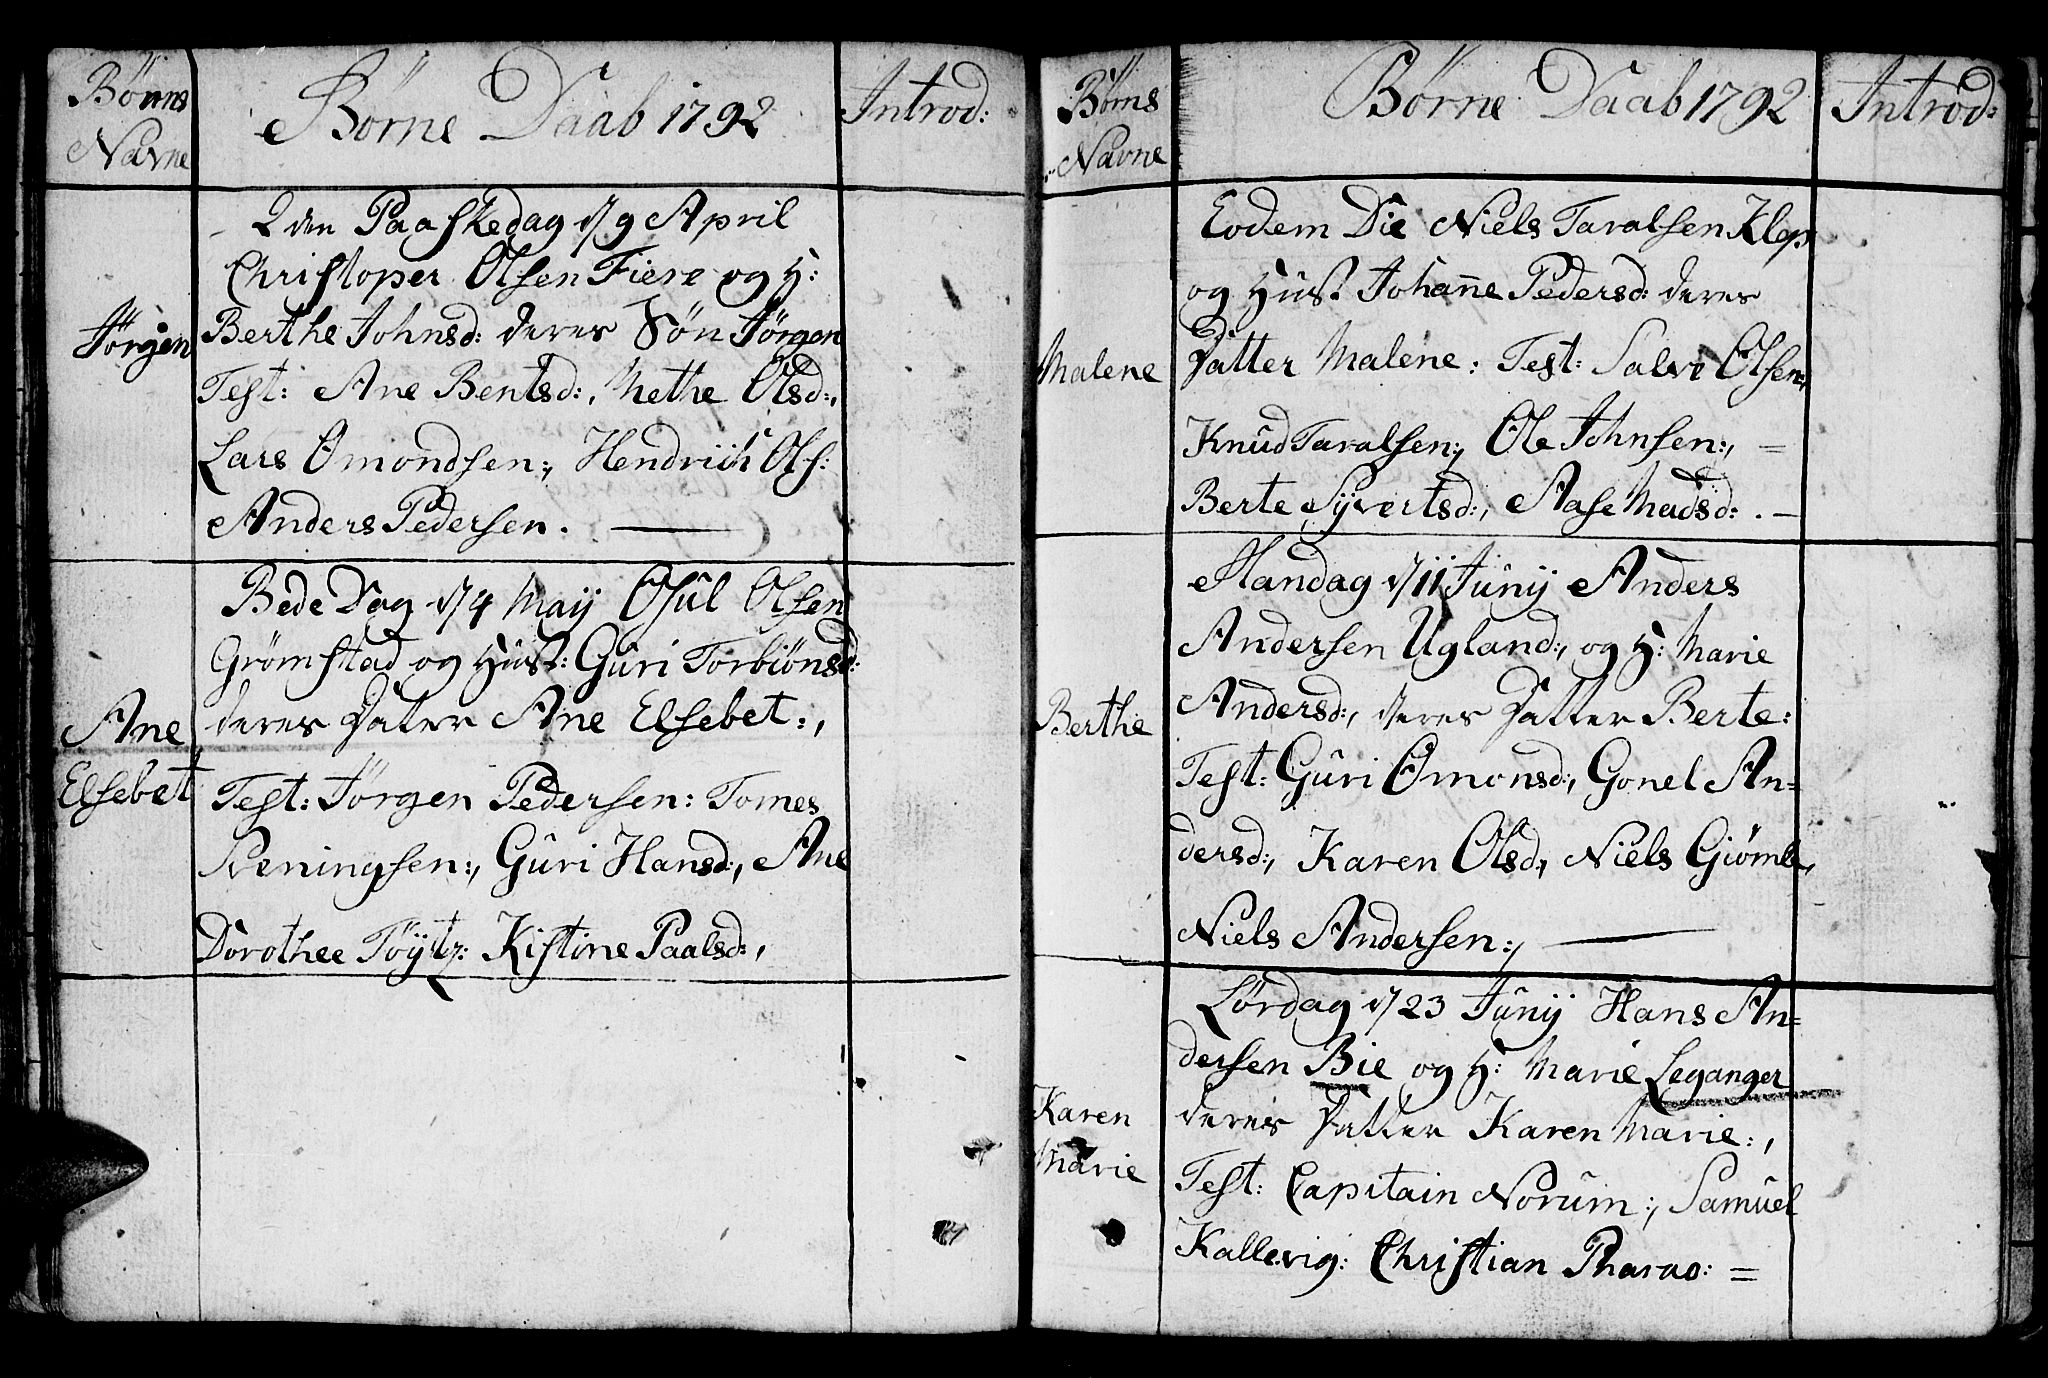 Börns
Navne
Börne Daab 1792
Introd:
2den Paaskedag d/9 April
Christoper Olsen Fiere og H:
Jörgen
Berthe Johnsd: deres Sön Jörgen
Test: Ane Bentsd:, Methe Olsd:,
Lars Omondsen:, Hendrich Ols:
Anders Pedersen.
Bede Dag d/4 Maij Osul Olsen
Grömstad og Hust: Guri Torbiönsd:
Ane
Elsebet
deres Datter Ane Elsebet:,
Test: Jörgen Pedersen: Tomes
Reningsen:, Guri Hansd:, Ane
Dorothee Töÿtz: Kistine Paalsd:,
Börns
Navne
Börne Daab 1792
Introd:
Eodem Die Niels Taralsen Klep
og Hust Johan̄e Pedersd: deres
Malene
Datter Malene: Test: Salve Olsen:,
Knud Taralsen:, Ole Johnsen:, =
Berte Sÿvertsd:, Aase Madsd: . –
Mandag d/11 Junÿ Anders
Andersen Ugland:, og H: Marie
Berthe
Andersd:, deres Datter Berte:
Test: Guri Omonsd:, Gonel An=
dersd:, Karen Olsd:, Niels Giömle,
Niels Andersen:,
Lördag d/23 Junÿ Hans An=
dersen Bie og H: Marie Leganger
Karen
Marie
deres Datter Karen Marie:,
Test: Capitain Norum:, Samuel
Kallevig: Christian Pharao: =